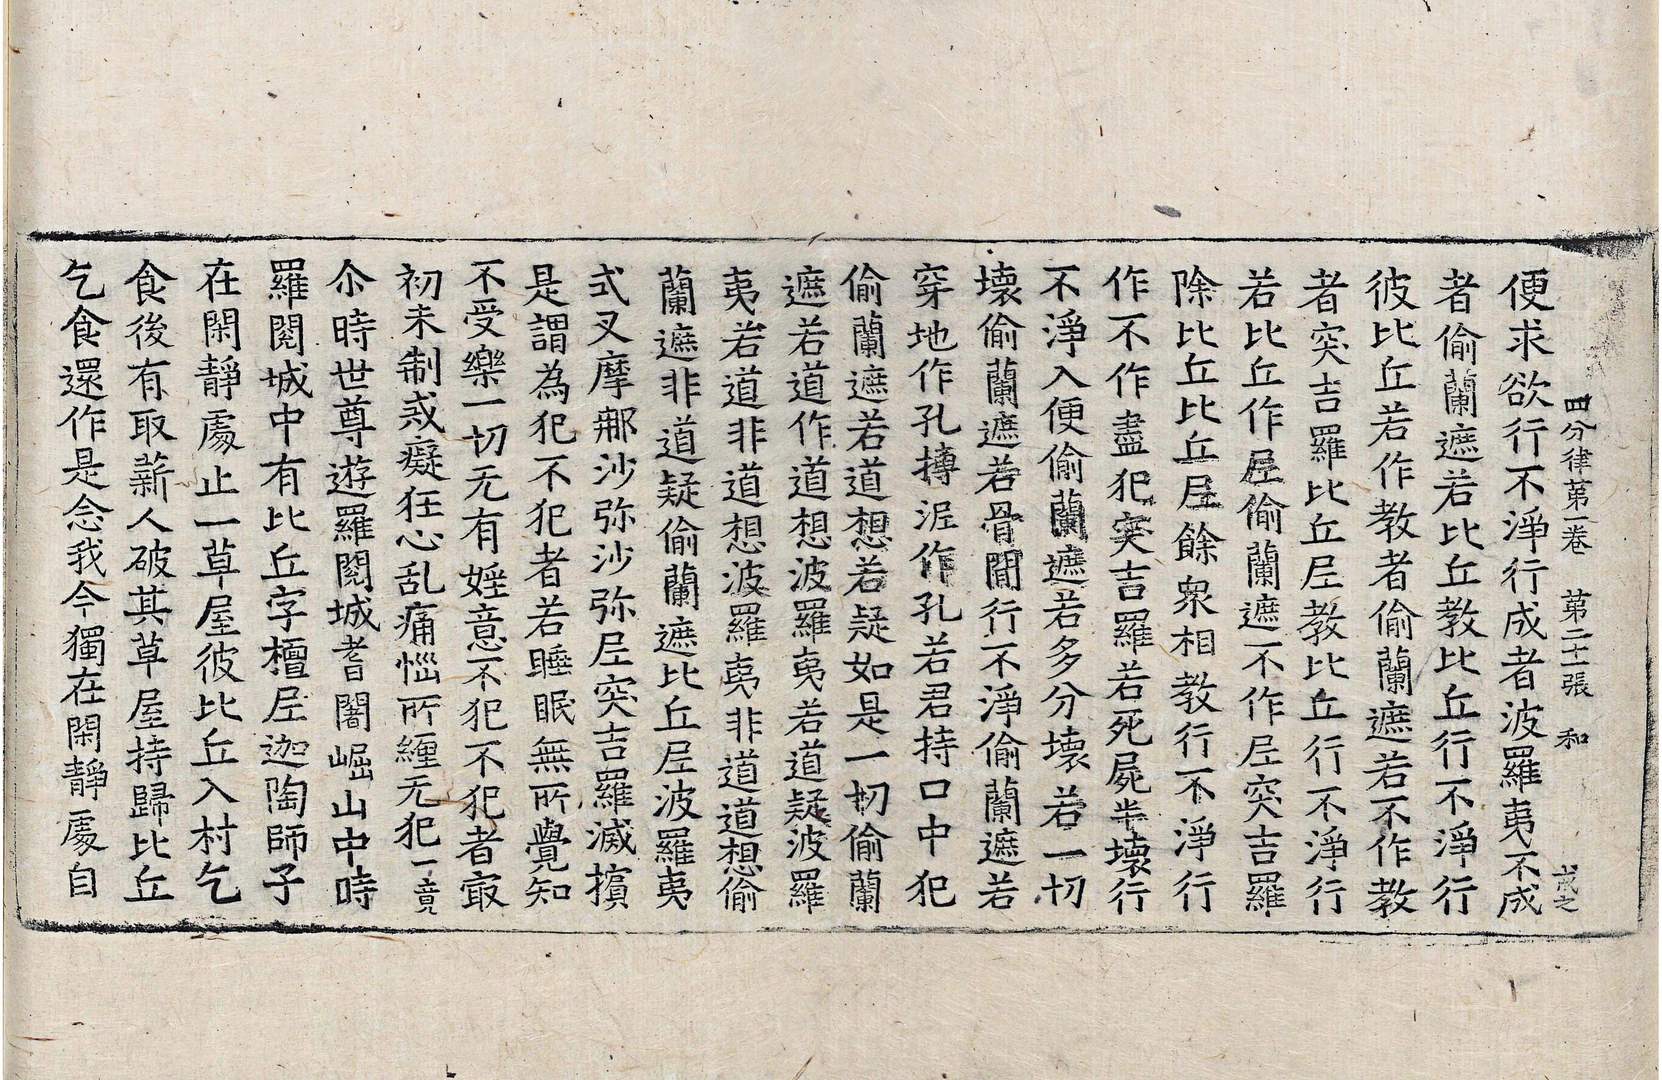 四分律第一卷 第二十一張 和 戒之
便求欲行不淨行成者波羅夷不成
者偷蘭遮若比丘教比丘行不淨行
彼比丘若作教者偷蘭遮若不作教
者突吉羅比丘𡰱教比丘行不淨行
若比丘作𡰱偷蘭遮不作𡰱突吉羅
除比丘比丘𡰱餘衆相教行不淨行
作不作盡犯突吉羅若死屍半壞行
不淨入便偷蘭遮若多分壞若一切
壞偷蘭遮若骨閒行不淨偷蘭遮若
穿地作孔摶泥作孔若君持口中犯
偷蘭遮若道想若疑如是一切偷蘭
遮若道作道想波羅夷若道疑波羅
夷若道非道想波羅夷非道道想偷
蘭遮非道疑偷蘭遮比丘𡰱波羅夷
式叉摩那沙弥沙弥𡰱突吉羅滅擯
是謂為犯不犯者若睡眠無所覺知
不受樂一切无有婬意不犯不犯者㝡
初未制戒癡狂心乱痛惱所纏无犯一竟
尒時世尊遊羅閱城耆闍崛山中時
羅閱城中有比丘字檀𡰱迦陶師子
在閑靜處止一草屋彼比丘入村乞
食後有取薪人破其草屋持歸比丘
乞食還作是念我今獨在閑靜處自